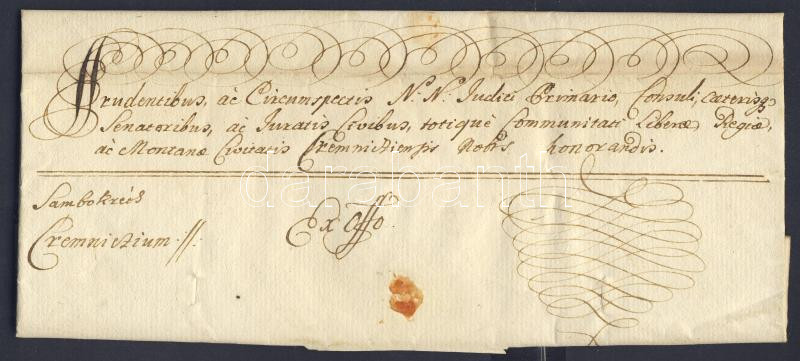 Prudentibus, ac Circumspectis N: N: Iudici Primario, Consuli, caterisq
Senatoribus, ac Iuratis Civibus, totiquè Communitati Liberæ Regiæ,
ac Montanæ Civitatis Cremnicziensis Nobis honorandis.
Sambokreth
Cremniczium
Ex Offo
darabanth